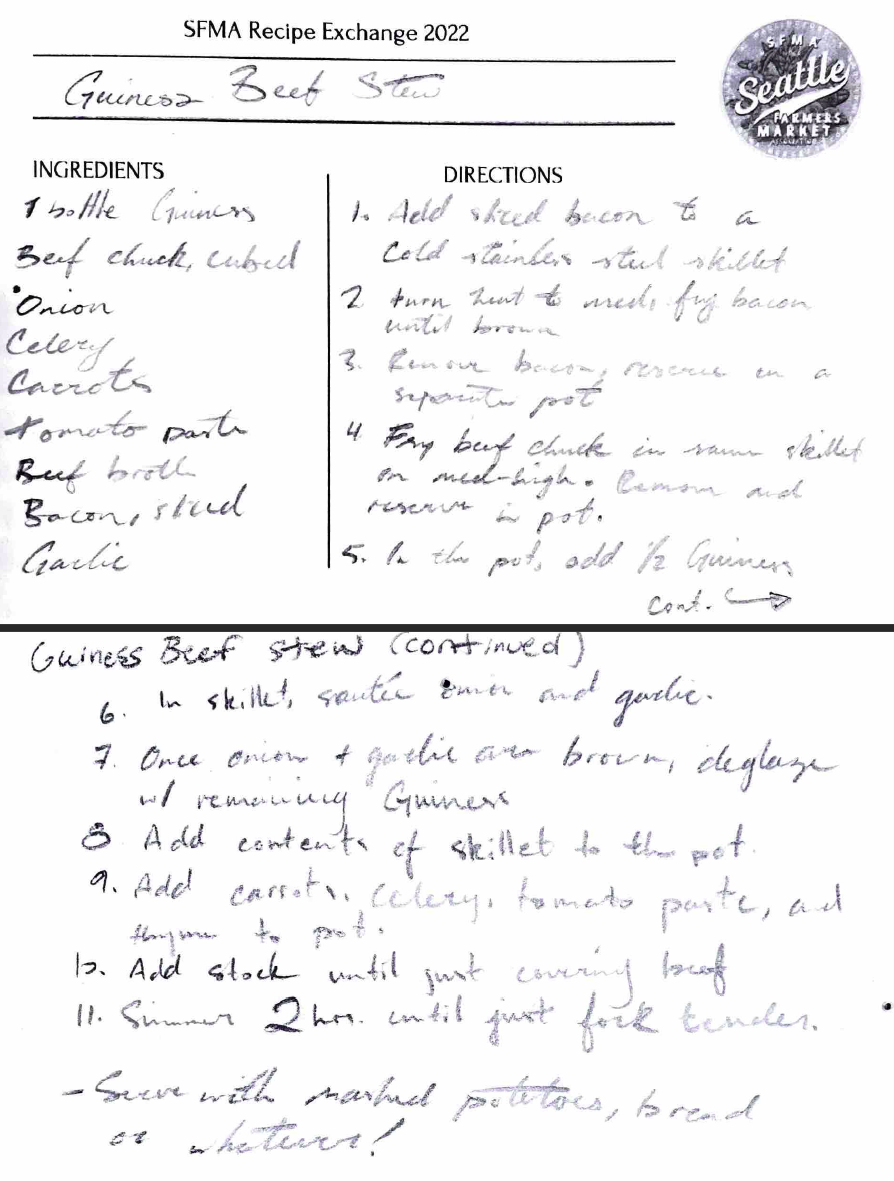 SFMA Recipe Exchange 2022
Guiness Beef Stew
SFMA
Seattle
FARMERS
MARKET
ASSOCIATION
INGREDIENTS
1 bottle Guiness
Beef chuck, cubed
Onion
Celery
Carrots
tomato paste
Beef broth
Bacon, sliced
Garlic
DIRECTIONS
1. Add sliced bacon to a
Cold stainless steel skillet
2 turn heat to med, fry bacon
until brown
3. Remove bacon, reserve in a
separate pot
4 Fry beef chuck in same skillet
on med-high. Remove and
reserve in pot.
5. In the pot, add 1/2 Guiness
cont. →
Guiness Beef stew (continued)
6. In skillet, sautée onion and garlic.
7. Once onion + garlic are brown, deglaze
w/ remaining Guiness
8 Add contents of skillet to the pot.
9. Add carrots, celery, tomato paste, and
thyme to pot.
10. Add stock until just covering beef
11. Simmer 2 hrs. until just fork tender.
- Serve with mashed potatoes, bread
or whatever!